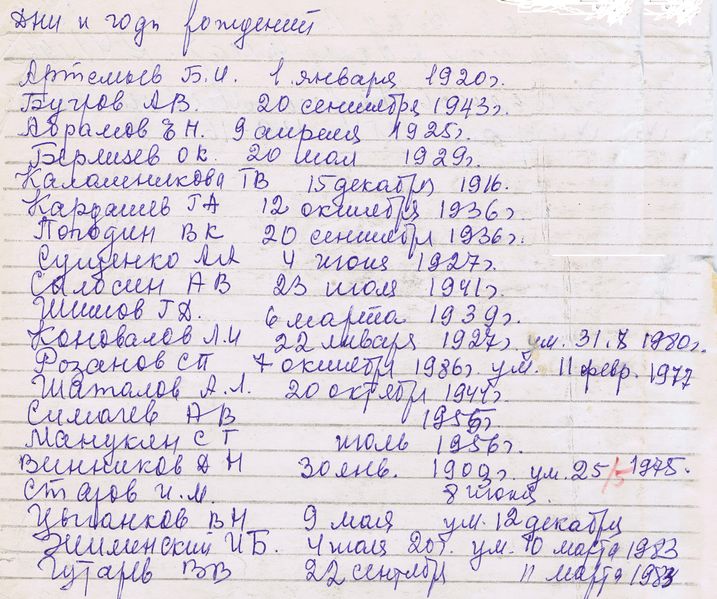 Дни и годы рождений
Артемьев Б.И. 1 января 1920г.
Бугров А В. 20 сентября 1943г.
Абрамов Е Н. 9 апреля 1925г.
Берлизев О К. 20 мая 1929г.
Калашникова Т В 15 декабря 1916.
Кардашев Г А 12 октября 1936г.
Погодин В К 20 сентября 1936г.
Сущенко А А 4 июня 1927г.
Сылосин А В 23 июля 1941г.
Г Д. 6 марта 1939г.
Коновалов Л.И 22 января 1927г ум. 31. 1980г.
Розанов С П 7 октября 1986г. ум. 11 февр. 1977
Шаталов А.Л. 20 октября
Симачев А В 1956г.
Манукян С Г июль 1956г.
Винников Д Н 30 янв. 1909г. ум. 25/5 1975.
Старов И.М. 8 июня.
Цыганков В Н 9 мая ум. 12 декабря
И Б. 4 мая ум. 10 марта 1983
Гутарев В В 22 сентября 11 марта 1983